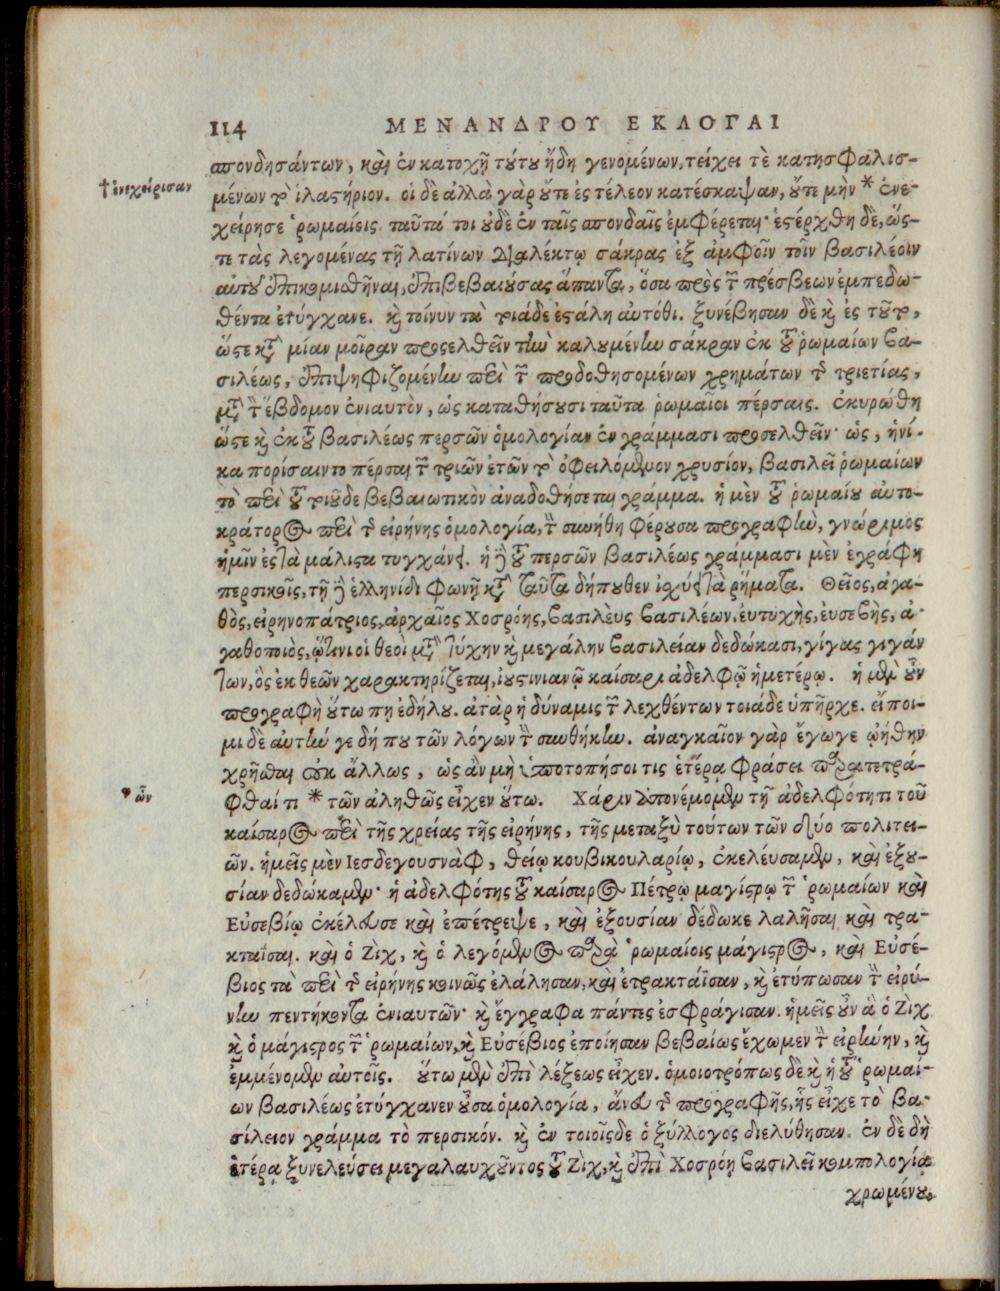 114 ΜΕΝΑΝΔΡΟΥ ΕΚΛΟΓΑΙ
σπονδησάντων, καὶ ἐν κατοχῇ τούτου ἤδη γενομένων, τείχει τὲ κατησφαλισ-
† ἐνεχείρισαν
μένων τὸ ἱλαστήριον. οἱ δὲ ἀλλὰ γὰρ οὔτε ἐς τέλεον κατέσκαψαν, οὔτε μὴν * ἐνε-
χείρησε ῥωμαίοις. ταῦτά τοι οὐδὲ ἐν ταῖς σπονδαῖς ἐμφέρεται· ἐστέρχθη δὲ, ὥς-
τε τὰς λεγομένας τῇ λατίνων διαλέκτῳ σάκρας ἐξ ἀμφοῖν τοῖν βασιλέοιν
αὐτοῦ ἐπικομισθῆναι, ἐπιβεβαιούσας ἅπαντα, ὅσα πρὸς τῶν πρέσβεων ἐμπεδω-
θέντα ἐτύγχανε. καὶ τοίνυν τὰ τοιάδε ἐστάλη αὐτόθι. ξυνέβησαν δὲ καὶ ἐς τοῦτο,
ὥστε κατὰ μίαν μοῖραν προσελθεῖν τὴν καλουμένην σάκραν ἐκ τοῦ ῥωμαίων βα-
σιλέως, ἐπιψηφιζομένην περὶ τῶν προδοθησομένων χρημάτων τῆς τριετίας,
μετὰ τὸν ἕβδομον ἐνιαυτὸν, ὡς καταθήσουσι ταῦτα ῥωμαῖοι πέρσαις. ἐκυρώθη
ὥστε καὶ ἐκ τοῦ βασιλέως περσῶν ὁμολογίαν ἐν γράμμασι προσελθεῖν· ὡς, ἡνί-
κα πορίσαιντο πέρσαι τῶν τριῶν ἐτῶν τὸ ὀφειλόμενον χρυσίον, βασιλεῖ ῥωμαίων
τὸ περὶ τοῦ τοιοῦδε βεβαιωτικὸν ἀναδοθήσεται γράμμα. ἡ μὲν τοῦ ῥωμαίου αὐτο-
κράτορος περὶ τῆς εἰρήνης ὁμολογία, τὴν συνήθη φέρουσα προγραφὴν, γνώριμος
ἡμῖν ἐς τὰ μάλιστα τυγχάνει. ἡ δὲ τοῦ περσῶν βασιλέως γράμμασι μὲν ἐγράφη
περσικοῖς, τῇ δὲ ἑλληνίδι φωνῇ κατὰ ταῦτα δήπουθεν ἰσχύει τὰ ῥήματα. Θεῖος, ἀγα-
θὸς, εἰρηνοπάτριος, ἀρχαῖος Χοσρόης, βασιλεὺς βασιλέων, εὐτυχὴς, εὐσεβὴς, ἀ-
γαθοποιὸς, ᾧτινι οἱ θεοὶ μεγάλην τύχην καὶ μεγάλην βασιλείαν δεδώκασι, γίγας γιγάν
των, ὃς ἐκ θεῶν χαρακτηρίζεται, ἰουστινιανῷ καίσαρι ἀδελφῷ ἡμετέρῳ. ἡ μὲν οὖν
προγραφὴ οὕτω πη ἐδήλου. ἀτὰρ ἡ δύναμις τῶν λεχθέντων τοιάδε ὑπῆρχε. εἴποι-
μι δὲ αὐτὴν γε δή που τῶν λόγων τὴν συνθήκην. ἀναγκαῖον γὰρ ἔγωγε ᾠήθην
χρῆσθαι οὐκ ἄλλως, ὡς ἂν μὴ ὑποτοπήσοι τις ἑτέρᾳ φράσει παρατετρά-
* ὧν
φθαί τι * τῶν ἀληθῶς εἶχεν οὕτω. Χάριν ἀπονέμομεν τῇ ἀδελφότητι τοῦ
καίσαρος περὶ τῆς χρείας τῆς εἰρήνης, τῆς μεταξὺ τούτων τῶν δύο πολιτει-
ῶν. ἡμεῖς μὲν Ιεσδεγουσνὰφ, θείῳ κουβικουλαρίῳ, ἐκελεύσαμεν, καὶ ἐξου-
σίαν δεδώκαμεν· ἡ ἀδελφότης τοῦ καίσαρος Πέτρῳ μαγίστρῳ τῶν ῥωμαίων καὶ
Εὐσεβίῳ ἐκέλευσε καὶ ἐπέτρεψε, καὶ ἐξουσίαν δέδωκε λαλῆσαι καὶ τρα-
κταΐσαι. καὶ ὁ Ζὶχ, καὶ ὁ λεγόμενος παρὰ ῥωμαίοις μάγιστρος, καὶ Εὐσέ-
βιος τὰ περὶ τῆς εἰρήνης κοινῶς ἐλάλησαν, καὶ ἐτρακτάϊσαν, καὶ ἐτύπωσαν τὴν εἰρή-
νην πεντήκοντα ἐνιαυτῶν· καὶ ἔγγραφα πάντες ἐσφράγισαν. ἡμεῖς οὖν ἃ ὁ Ζὶχ
καὶ ὁ μάγιστρος τῶν ῥωμαίων, καὶ Εὐσέβιος ἐποίησαν βεβαίως ἔχωμεν τὴν εἰρήνην, καὶ
ἐμμένομεν αὐτοῖς. οὕτω μὲν ἐπὶ λέξεως εἶχεν. ὁμοιοτρόπως δὲ καὶ ἡ τοῦ ῥωμαί-
ων βασιλέως ἐτύγχανεν οὖσα ὁμολογία, ἄνευ τῆς προγραφῆς, ἧς εἶχε τὸ βα-
σίλειον γράμμα τὸ περσικόν. καὶ ἐν τοιοῖσδε ὁ ξύλλογος διελύθησαν. ἐν δὲ δὴ
ἑτέρᾳ ξυνελεύσει μεγαλαυχοῦντος τοῦ Ζὶχ, καὶ ἐπὶ Χοσρόῃ βασιλεῖ κομπολογίᾳ
χρωμένου,